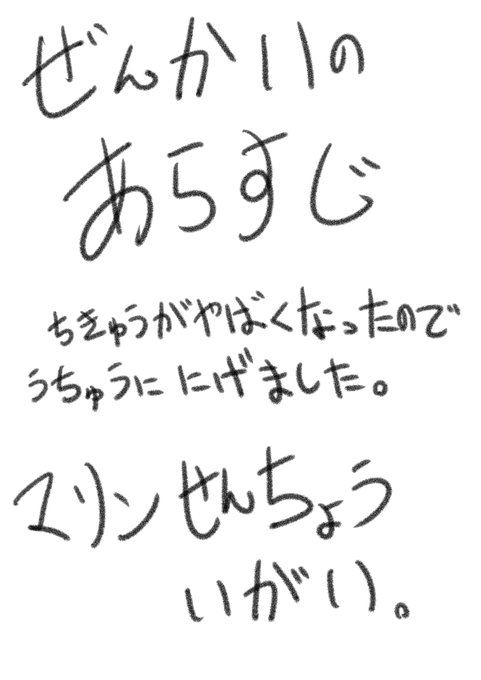 ぜんかいの
あらすじ
ちきゅうがやばくなったので
うちゅうに にげました。
マリンせんちょう
いがい。